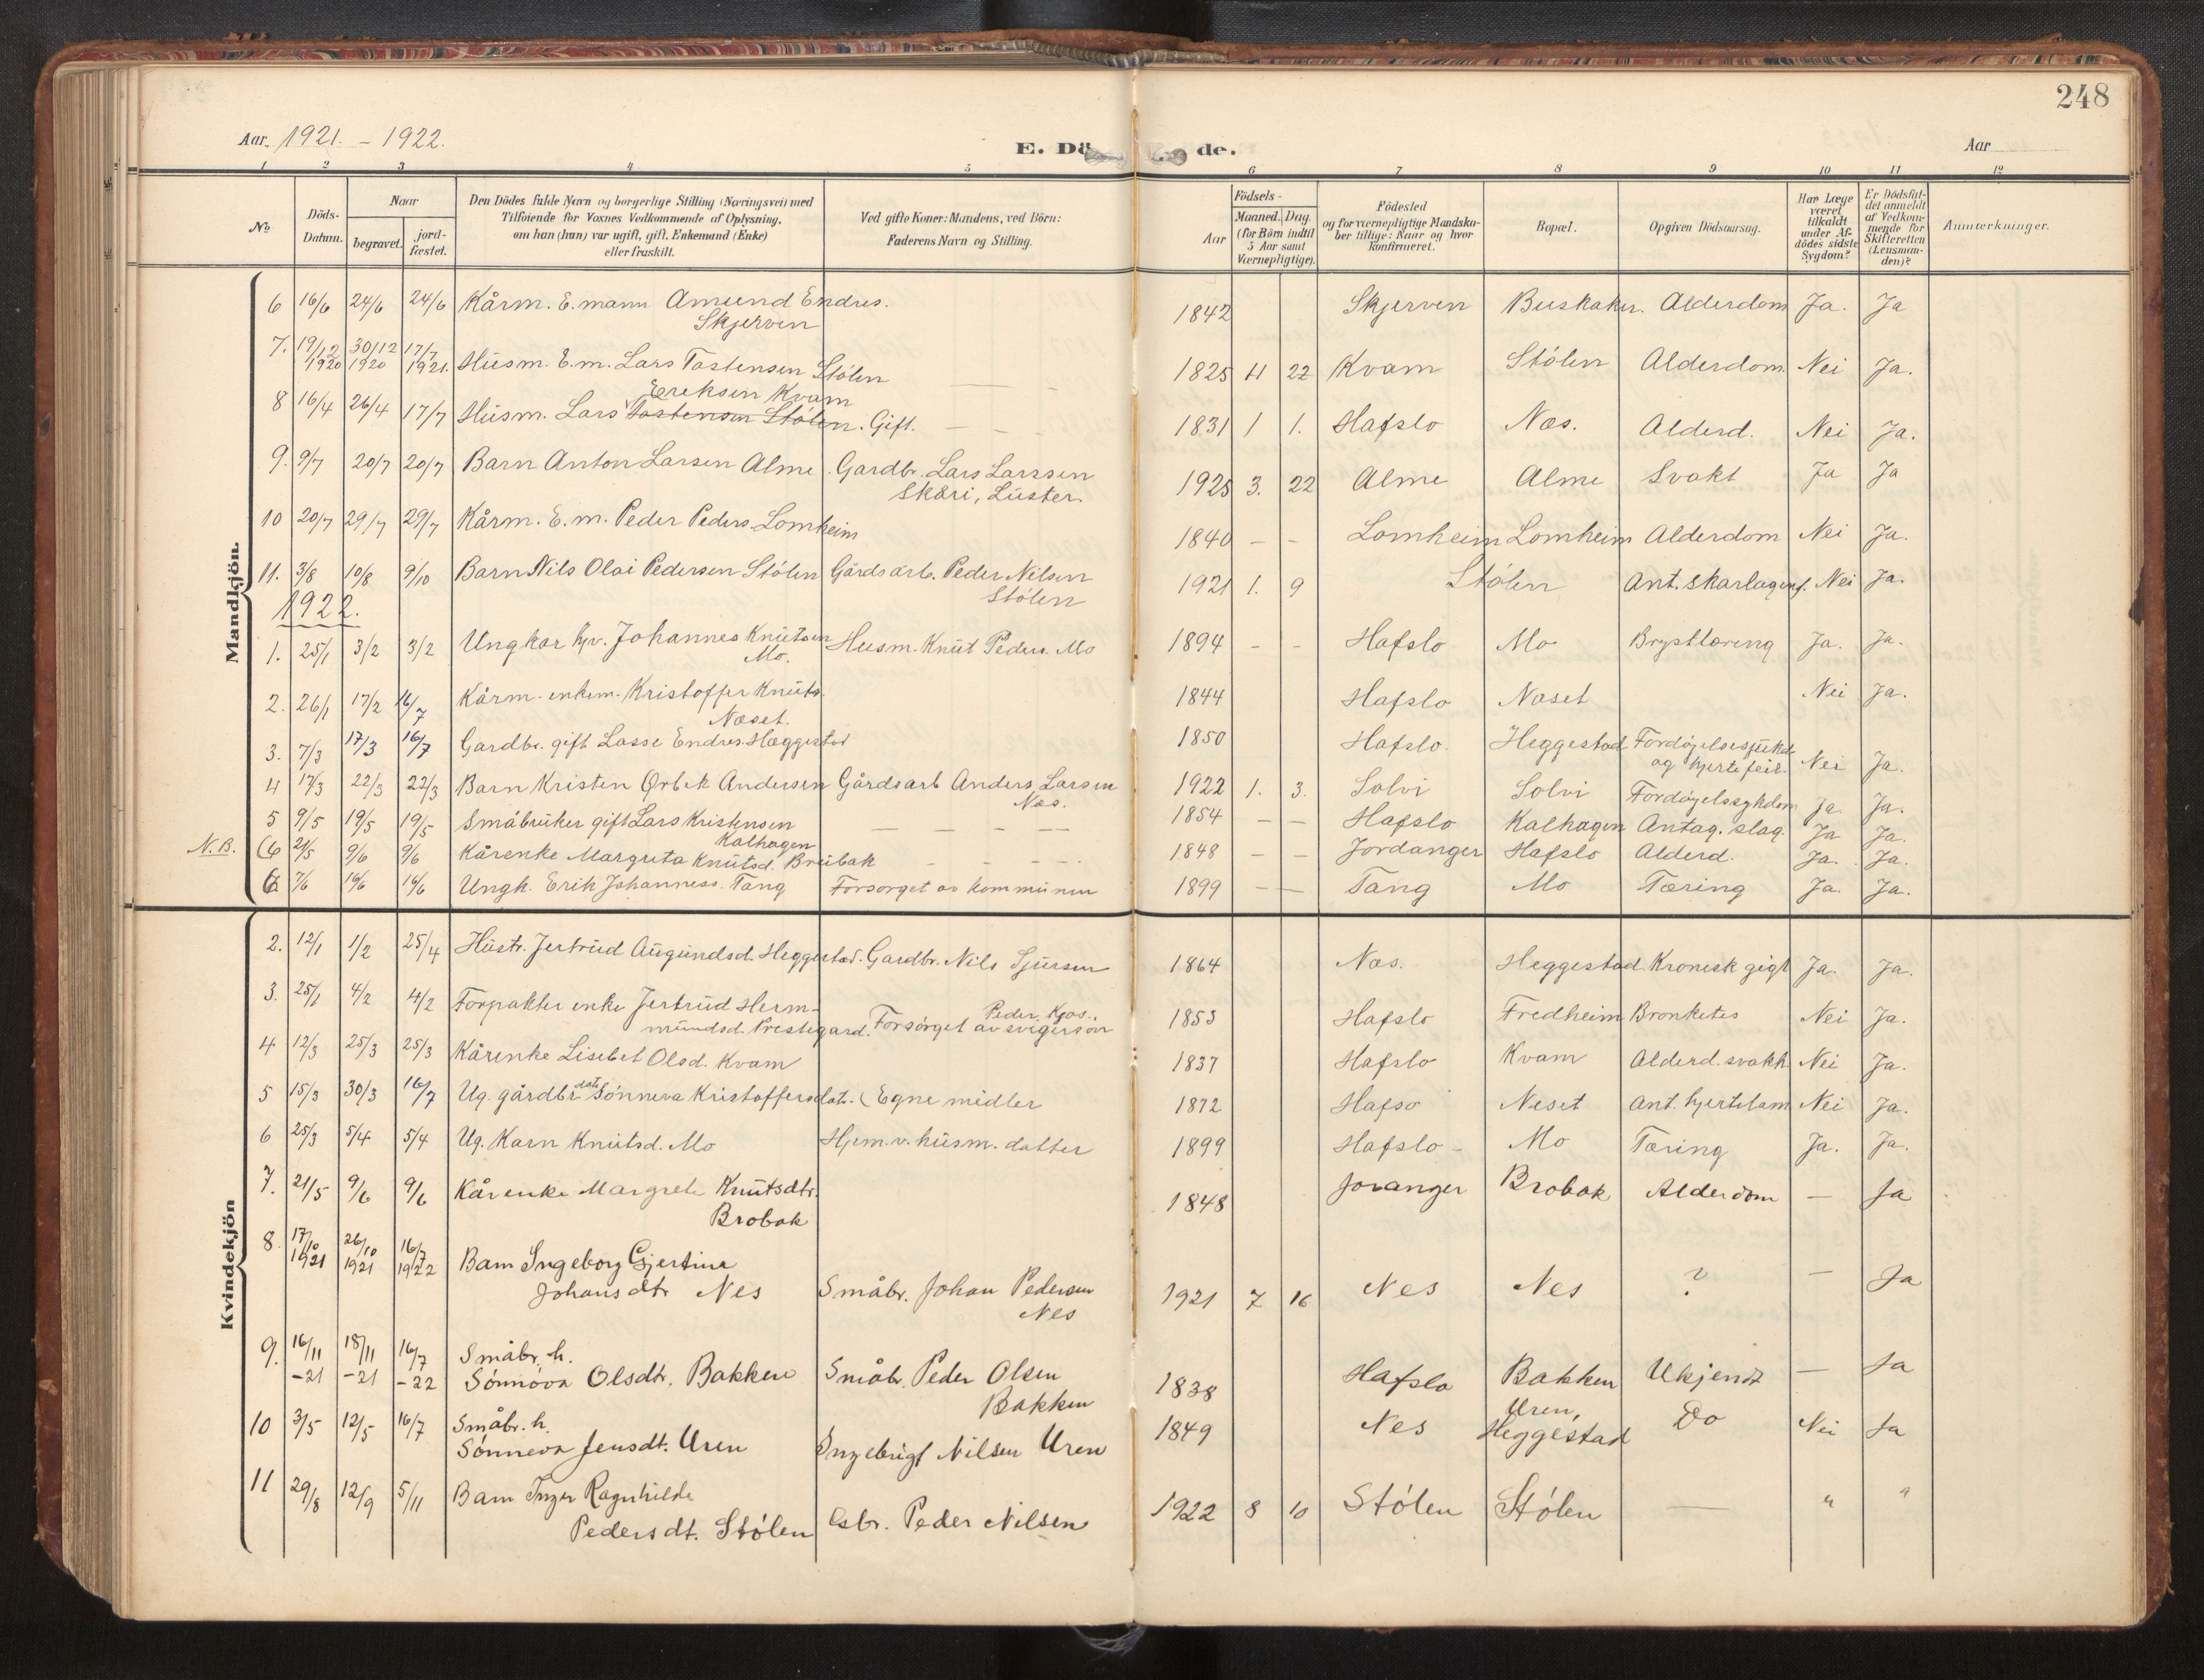 248
Aar. 1921. – 1922.
E. Dö de.
Aar
1 2 3 4 5 6 7 8 9 10 11 12
№
Döds-Datum.
Naar
begravet.
jord-fæstet.
Den Dödes fulde Navn og borgerlige Stilling (Næringsvei) med
Tilföiende for Voxnes Vedkommende af Oplysning,
om han (hun) var ugift, gift, Enkemand (Enke)
eller fraskilt.
Ved gifte Koner: Mandens, ved Börn:
Faderens Navn og Stilling.
Födsels-
Aar
Maaned. Dag.
(for Börn indtil
5 Aar samt
Værnepligtige).
Födested
og for værnepligtige Mandska-
ber tillige: Naar og hvor
Konfirmeret.
Bopæl.
Opgiven Dödsaarsag.
Har Læge
været
tilkaldt
under Af-
dödes sidste
Sygdom?
Er Dödsfal-
det anmeldt
af Vedkom-
mende for
Skifteretten
(Lensman-
den)?
Anmærkninger.
Mandkjön.
6 16/6 24/6 24/6 Kårm. E. mann Amund Endres. 1842 Skjerven Alderdom Ja. Ja
Skjerven
7. 19/12 1920 30/12 1920 17/7 1921. Husm. E. m. Lars Tostensen Stólen 1825 11 22 Kvam Stólen Alderdom. Nei Ja.
Ereksen Kvam
8 16/4 26/4 17/7 Husm. Lars Tostensen Stólen. Gift. 1831 1 1. Hafslo Næs. Alderd. Nei Ja.
9. 9/7 20/7 20/7 Barn Anton Larsen Alme. Gardbr. Lars Larssen 1925 3. 22 Alme Alme Svakt Ja Ja
Skåri, Luster.
10 20/7 29/7 29/7 Kårm. E. m. Peder Peders. Lomheim 1840 – – Lomheim Lomheim Alderdom Nei Ja.
11. 3/8 10/8 9/10 Barn Nils Olai Pedersen Stólen Gårdsarb. Peder Nilsen 1921 1. 9 Stólen Ant. skarlagenf. Nei Ja.
Stólen
1922.
1. 25/1 3/2 3/2 Ungkar hjv. Johannes Knutsen Husm. Knut Peders. Mo 1894 – – Hafslo Mo Brysttæring Ja. Ja.
Mo.
2. 26/1 17/2 16/7 Kårm. enkem. Kristoffer Knuts. 1844 Hafslo Næset Nei Ja.
Næset.
3. 7/3 17/3 16/7 Gardbr. gift Lasse Endres. Hæggestad 1850 Hafslo. Heggestad Fordøyelsessjukd.
og hjertefeil. Nei Ja.
4 17/3 22/3 22/3 Barn Kristen Ørbek Andersen Gårdsarb Anders Larsen 1922 1. 3. Solvi Solvi Fordøyelssykdom Ja. Ja.
Næs.
5 9/5 19/5 19/5 Småbruker gift Lars Kristensen – – – – 1854 – – Hafslo Kalhagen Antag. slag. Ja Ja.
Kalhagen
N.B. (6 21/5 9/6 9/6 Kårenke Margreta Knutsd. Breibak – – – – 1848 – – Jordanger Hafslo Alderd. Ja. Ja.
6 7/6 16/6 16/6 Ungk. Erik Johanness. Tang Forsorget av kommunen 1899 – – Tang Mo Tæring Ja. Ja.
Kvindekjön
2. 12/1 1/2 25/4 Hustr. Jertrud Augundsd. Heggestad. Gardbr. Nils Sjursen 1864 Næs. Heggestad Kronesk gigt Ja. Ja.
3. 25/1 4/2 4/2 Forpakter enke Jertrud Herm-
mundsd. Prestegard. Forsørget av svigersøn Peder Kjos. 1853 Hafslo Fredheim Bronketes Nei Ja.
4 12/3 25/3 25/3 Kårenke Lisebet Olsd. Kvam 1837 Hafslo Kvam Alderd. svakh. Nei Ja.
5 15/3 30/3 16/7 Ug. gårdbr. datr Sónneva Kristoffersdatr. (Egne midler 1872 Hafso Neset Ant. hjertelam Nei Ja.
6 25/3 5/4 5/4 Ug. Karn Knutsd. Mo Hjem. v. husm. datter 1899 Hafslo – Mo Tæring Ja. Ja.
7. 21/5 9/6 9/6 Kårenke Margrete Knutsdtr. 1848 Joranger Brobak Alderdom – Ja
Brobak
8. 17/10 1921 26/10 1921 16/7 1922 Barn Ingeborg Gjertine
Johansdtr Nes Småbr. Johan Pedersen 1921 7 16 Nes Nes ? – Ja
Nes
9. 16/11 -21 18/11 -21 16/7 -22 Småbr. h.
Sónnóva Olsdtr. Bakken Småbr. Peder Olsen 1838 Hafslo Bakken Ukjendt – Ja
Bakken
10 3/5 12/5 16/7 Småbr. h.
Sónneva Jensdt. Uren Ingebrigt Nilsen Uren 1849 Nes Uren, Heggestad Do Nei Ja
11 29/8 12/9 5/11 Barn Inger Ragnhilde
Pedersdt. Stólen Gsbr. Peder Nilsen 1922 8 10 Stólen Stólen — " "